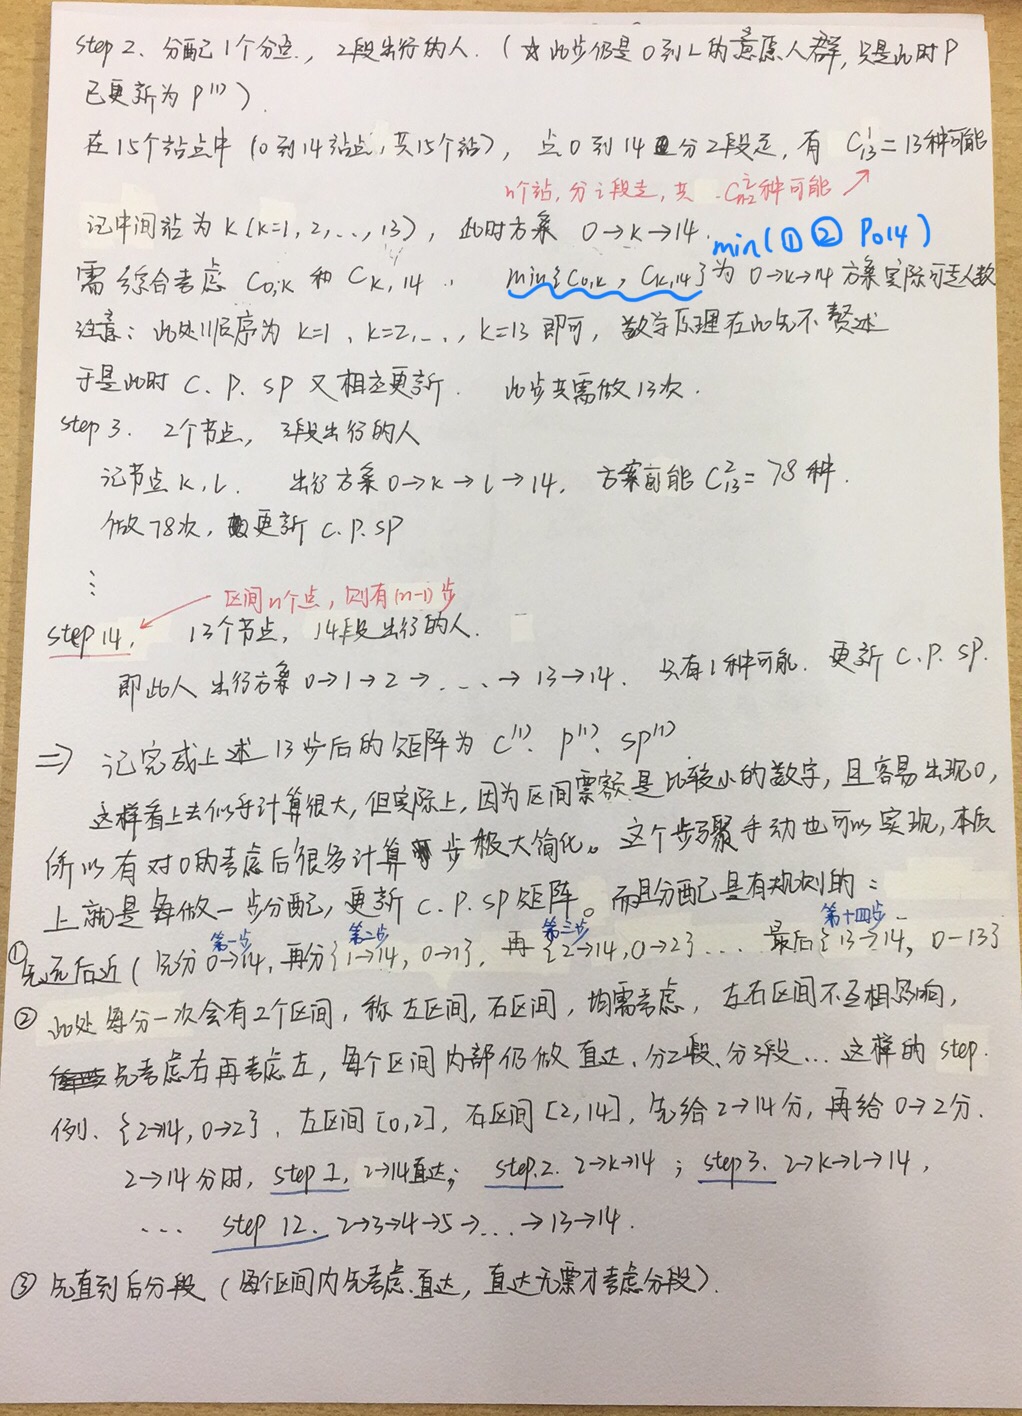 step 2、分配1个分点，2段出行的人.（☆此步仍是0到L的意愿人群，只是此时P
已更新为P⁽¹⁾）.
在15个站点中（0到14站点，共15个站），点0到14分2段走，有 C¹₁₃=13种可能
n个站，分i段走，共 种可能
记中间站为K(K=1,2,...,13)，此时方案 0→K→14.
min(①② P014)
需综合考虑 C0,K 和 CK,14 .. min{C0,K , CK,14}为 0→K→14方案实际可走人数
注意：此处顺序为K=1、K=2,...,K=13即可，数学原理在此先不赘述
于是此时 C.P.SP 又相应更新. 此步共需做13次.
step 3. 2个节点，3段出行的人
记节点K,L. 出行方案0→K→L→14. 方案可能C²₁₃=78种.
做78次，更新C.P.SP
⋮
区间n个点，则有(n-1)步
step 14. 13个节点，14段出行的人.
即此人出行方案0→1→2→...→13→14. 只有1种可能. 更新C.P.SP.
⇒ 记完成上述13步后的矩阵为C⁽¹⁾. P⁽¹⁾. SP⁽¹⁾
这样看上去似乎计算很大，但实际上，因为区间票额是比较小的数字，且容易出现0，
所以有对0的考虑后很多计算步极大简化。这个步骤手动也可以实现，本质
上就是每做一步分配，更新C.P.SP矩阵。而且分配是有规则的：
第一步 第二步 第三步 第十四步
①先远后近（先分0→14，再分{1→14, 0→1}，再{2→14, 0→2}... 最后{13→14, 0-13}
②此处每分一次会有2个区间，称左区间，右区间，均需考虑，左右区间不互相影响，
先考虑右再考虑左，每个区间内部仍做直达、分2段、分3段...这样的step.
例、{2→14, 0→2}，左区间[0,2]，右区间[2,14]，先给2→14分，再给0→2分.
2→14分时，step 1. 2→14直达；step.2. 2→K→14；step 3. 2→K→L→14，
... step 12. 2→3→4→5→...→13→14.
③先直到后分段（每个区间内先考虑直达，直达无票才考虑分段）.